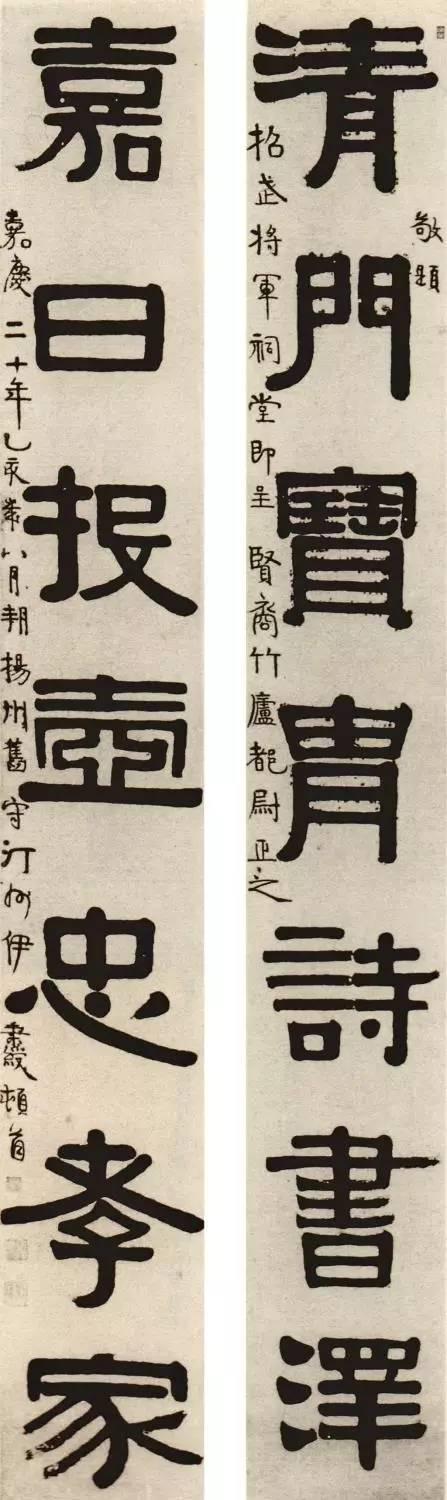 清門寶胄詩書澤
敬題
昭武將軍祠堂即呈賢裔竹廬都尉正之
嘉日投壺忠孝家
嘉慶二十年乙亥歲八月朔揚州舊守汀州伊秉綬頓首